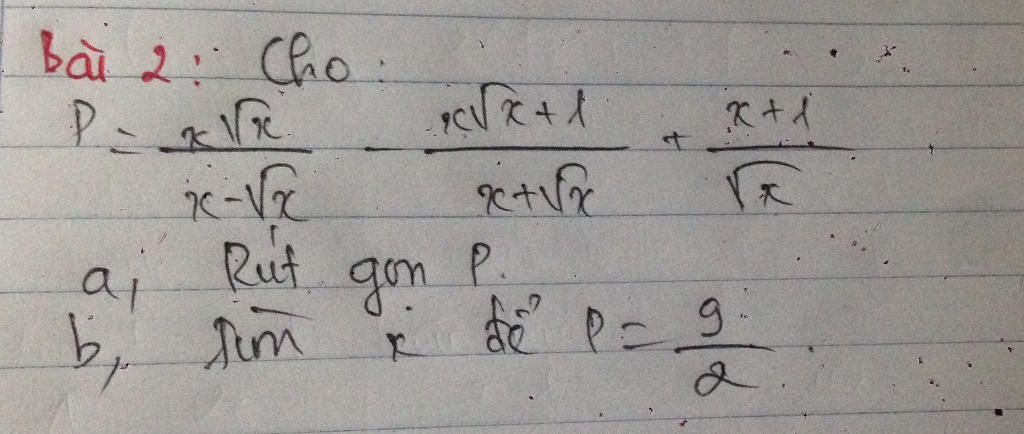 bài 2: Cho:
P = x√x / x-√x - x√x+1 / x+√x + x+1 / √x
a, Rút gọn P.
b, Tìm x để P = 9/2.